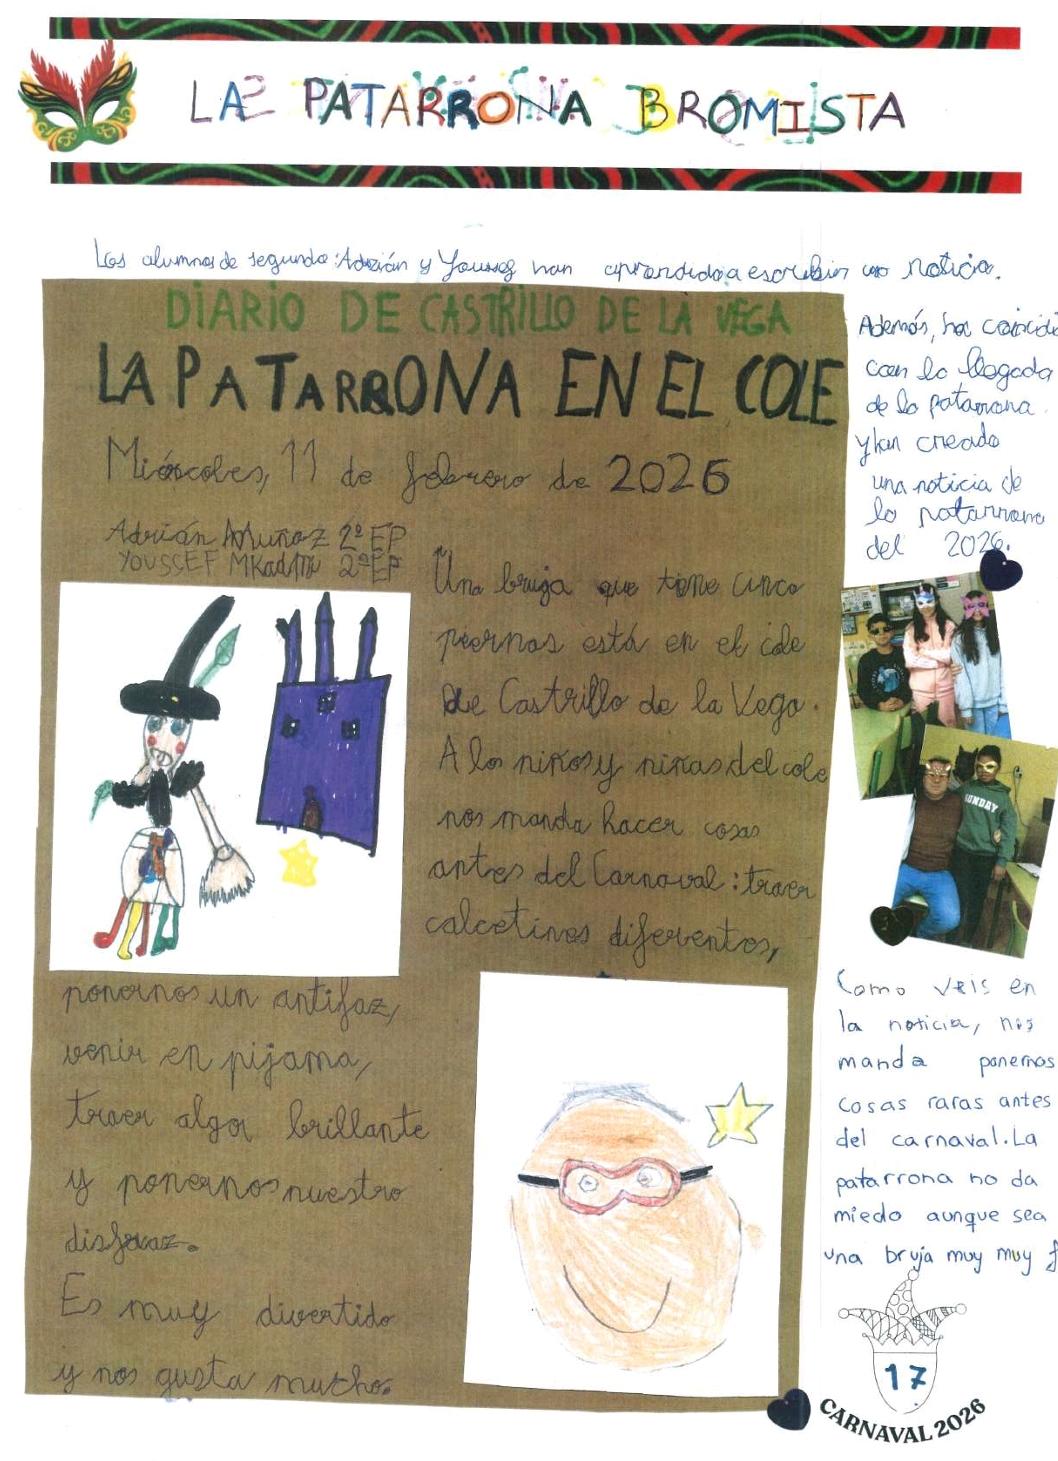 LA PATARRONA BROMISTA
Los alumnos de segundo: Adrián y Youssef han aprendido a escribir una noticia.
DIARIO DE CASTRILLO DE LA VEGA
LA PATARRONA EN EL COLE
Miércoles, 11 de febrero de 2026
Adrián Muñoz 2º EP
YOUSSEF 2º EP
Una bruja que tiene cinco
piernas está en el cole
de Castrillo de la Vega.
A los niños y niñas del cole
nos manda hacer cosas
antes del Carnaval: traer
calcetines diferentes,
ponernos un antifaz,
venir en pijama,
traer algo brillante
y ponernos nuestro
disfraz.
Es muy divertido
y nos gusta mucho.
Además, ha coincidi
con la llegada
de la patarrona
y han creado
una noticia de
la patarrona
del 2026.
SUNDAY
Como veis en
la noticia, nos
manda ponernos
cosas raras antes
del carnaval. La
patarrona no da
miedo aunque sea
una bruja muy muy f
17
CARNAVAL 2026